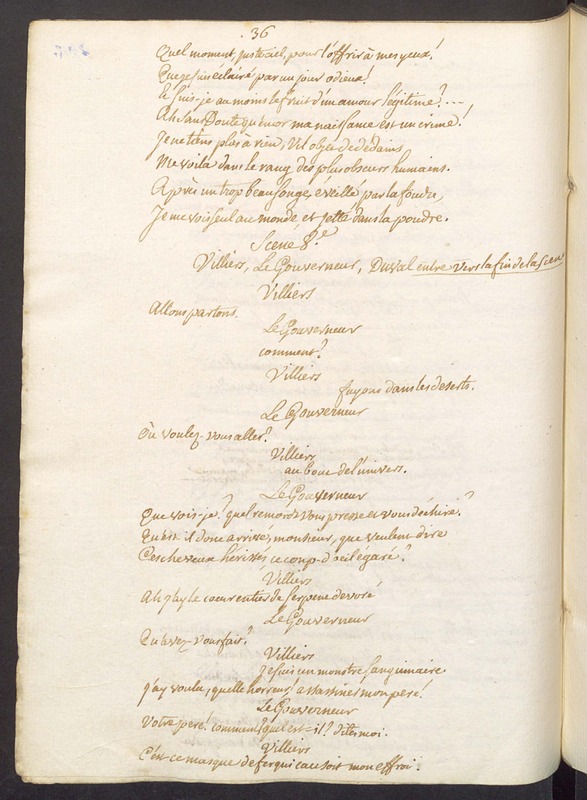 36
Quel moment, juste ciel, pour l'offrir à mes yeux!
Que je suis éclairé par un jour odieux!
Et suis-je au moins le fruit d'un amour légitime?....
Ah sans Doute qu'encor ma naissance est un crime!
Je ne tiens plus à rien, Vil objet de dédains,
Me voilà dans le rang des plus obscurs humains.
Après un trop beau songe, éveillé par la foudre,
Je me vois seul au monde et jetté dans la poudre.
Scene 8.e
Villiers, Le Gouverneur, Duval entre vers la fin de la Scene
Villiers
Allons partons.
Le Gouverneur
comment?
Villiers
fuyons dans les deserts.
Le Gouverneur
Où voulez-vous aller?
Villiers
au bout de l'univers.
Le Gouverneur
Que vois-je? quel remords vous presse et vous déchire?
Qu'est-il donc arrivé, monsieur, que veulent dire
Ces cheveux hérissés, ce coup-d'oeil égaré?
Villiers
Ah j'ay le coeur entier de serpens devoré
Le Gouverneur
Qu'avez-vous fait?
Villiers
Je suis un monstre sanguinaire
J'ay voulu, quelle horreur! assassiner mon peré!
Le Gouverneur
Votre peré! comment? quel est-il? dites moi.
Villiers
C'est ce masque de fer qui causoit mon effroi.